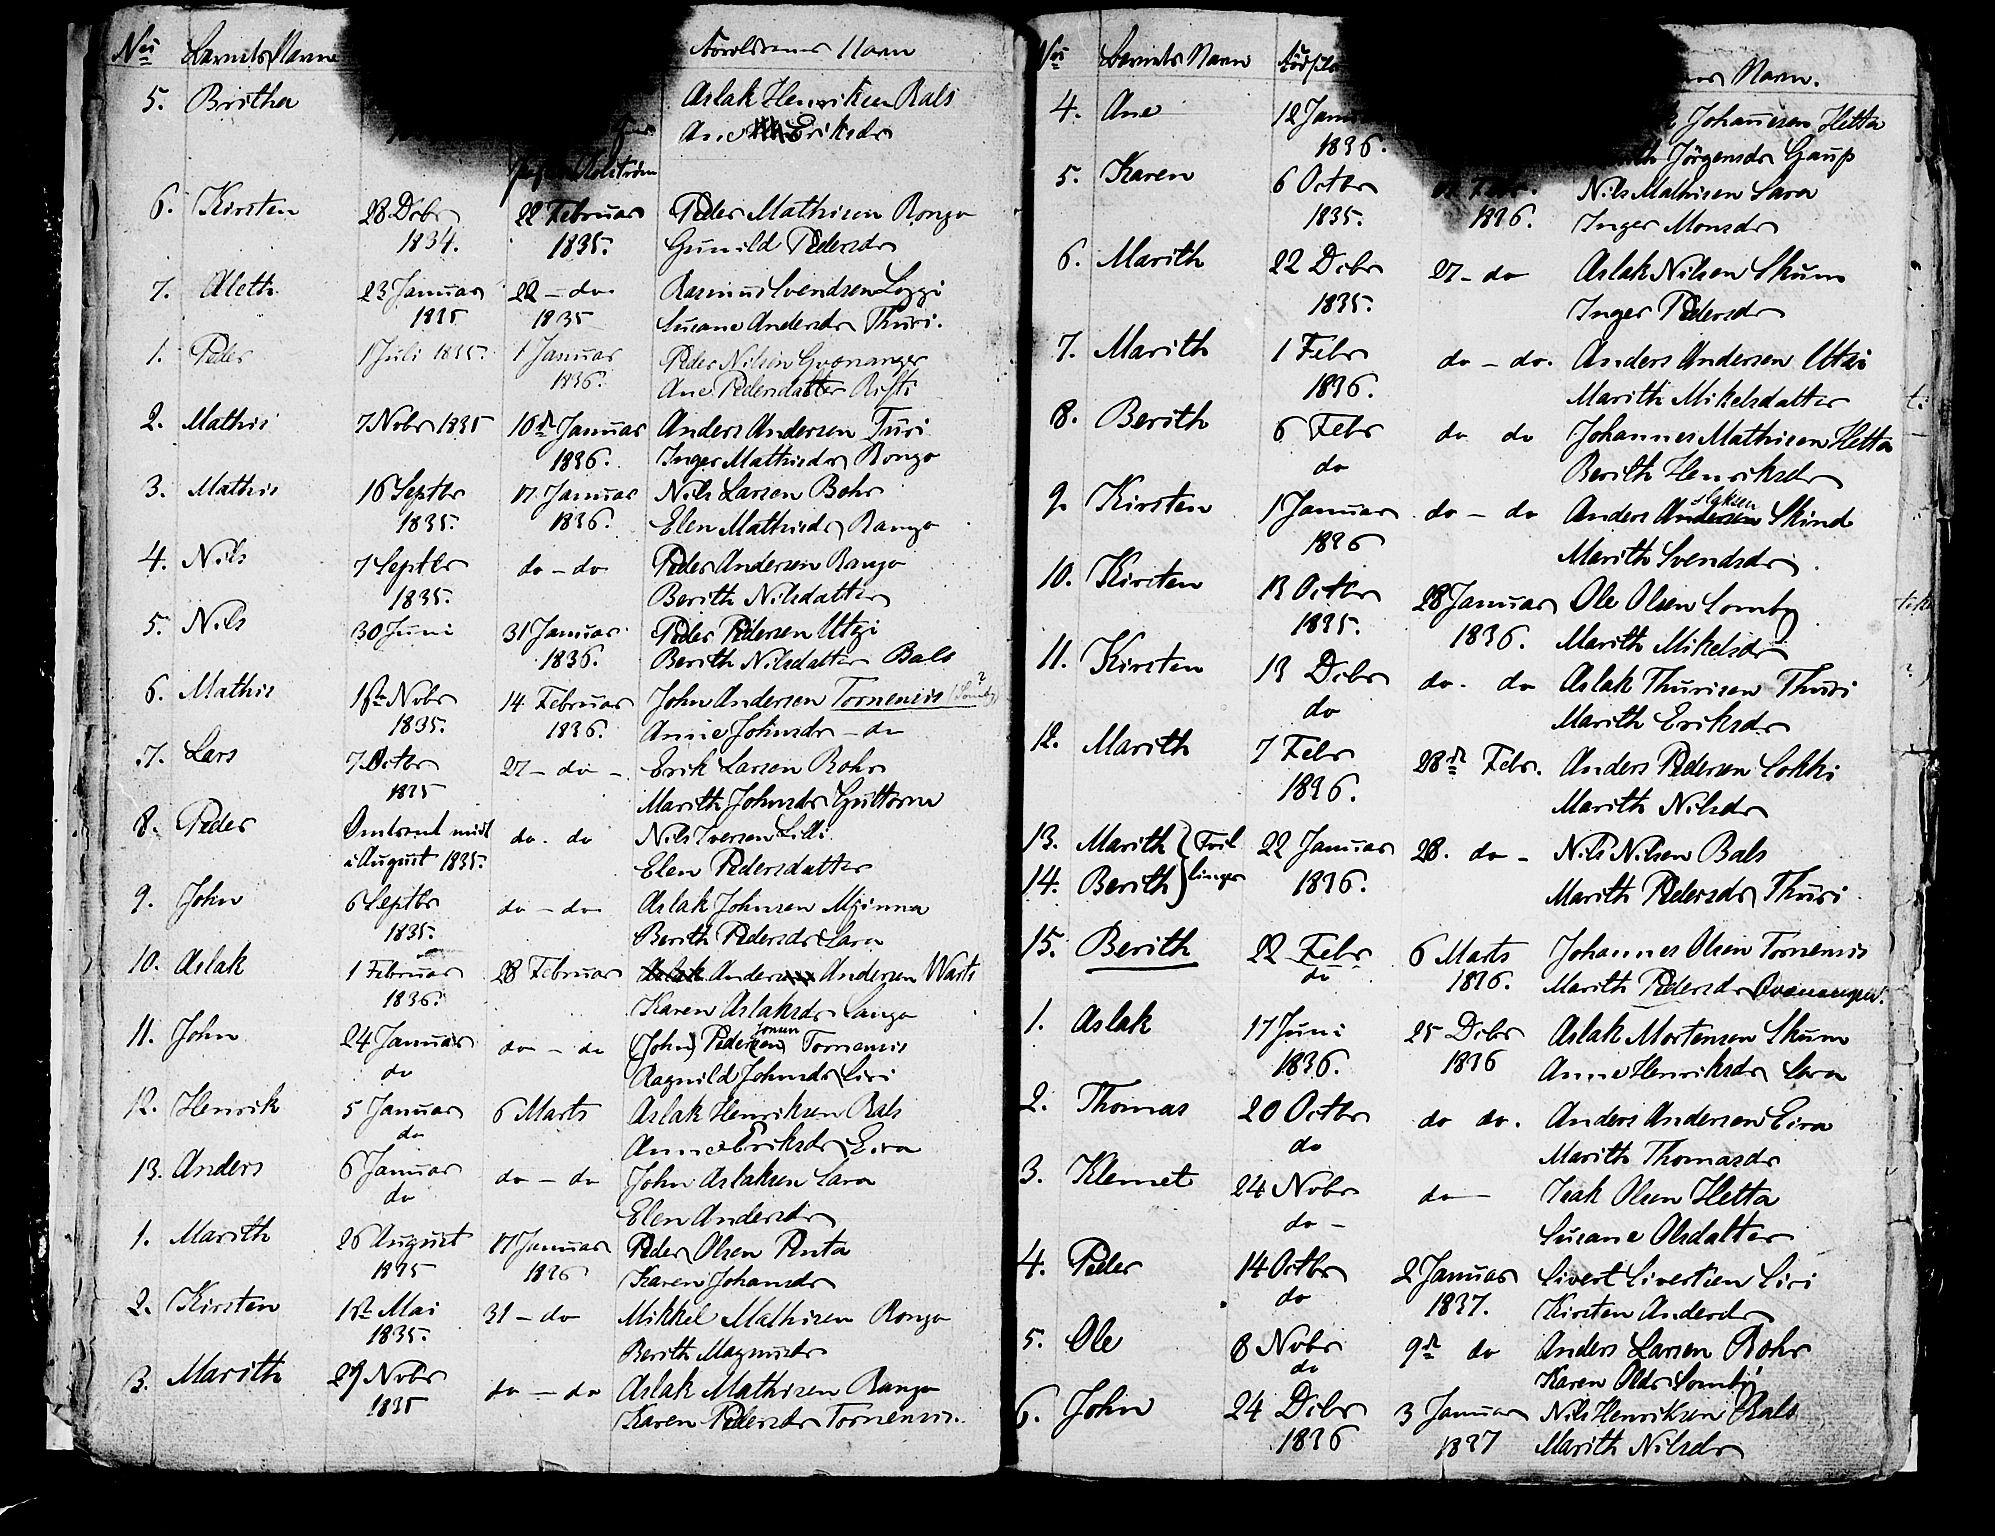 No Barnets Navn Forældrenes Navn
5. Britha Aslak Henriksen Bals
Ane Eriksdr
6. Kirsten 28 Dcbr 22 Februar Peder Mathisen Rongo
1834. 1835. Gunild Pedersdr
7. Aleth 23 Januar 22 - do Rasmus Svendsen Loggi
1835 1835 Susane Andersdr Thuri.
1. Peder 1 Juli 1835. 1 Januar Peder Nilsen Qvænanger
1836. Ane Pedersdatter
2. Mathis 7 Novbr 1835 10de Januar Anders Andersen Turi
1836. Inger Mathisdr Rongo
3. Mathis 16 Septbr 17 Januar Nils Larsen Bohr
1835. 1836. Elen Mathisdr Rango
4. Nils 7 Septbr do - do Peder Andersen Rango
1835. Berith Nilsdatter
5. Nils 30 Juni 31 Januar Peder Pedersen Utzi
1836. Berith Nilsdatter Bals
6. Mathis 1ste Novbr 14 Februar John Andersen Tornensis (Somby?)
1835. 1836. Anne Johnsdr - do
7. Lars 7 Octbr 27 - do - Erik Larsen Rohr
1835 Marith Johnsdr Guttorm
8. Peder Omtrent midt do. do Nils Iversen Lilli
i August 1835. Elen Pedersdatter
9. John 6 Septbr do - do Aslak Johnsen Mjinna
1835. Berith Pedersdr Sara
10. Aslak 1 Februar 28 Februar Aslak Anders Andersen Warts
1836. Karen Aslaksdr Sango
11. John 24 Januar do - do (John) Peder(sen) Jonsen Tornensis
do Ragnild Johnsdr Siri
12. Henrik 5 Januar 6 Marts Aslak Henriksen Bals
do Anne Eriksdr Eira
13. Anders 6 Januar do - do John Aslaksen Sara
do Elen Andersdr
1. Marith 26 August 17 Januar Peder Olsen Penta
1835 1836 Karen Johansdr
2. Kirsten 1ste Mai 31 - do Mikkel Mathisen Rongo
1835. Berith Magnusdr
3. Marith 29 Novbr do - do Aslak Mathisen Rango
1835 Karen Pedersdr Tornensis.
No Barnets Navn Navn.
4. Ane 12 Johannesen Hetta
1836. Jörgensdr Gaup
5. Karen 6 Octbr Nils Mathisen Sara
1835. 1836. Inger Monsdr
6. Marith 22 Dcbr 27 - do Aslak Nilsen Skum
1835. Inger Pedersdr
7. Marith 1 Febr do - do. Anders Andersen Utsi
1836. Marith Mikelsdatter
8. Berith 6 Febr do do Johannes Mathisen Hetta
do Berith Henriksdr
9. Kirsten 1 Januar do - do Anders Andersen slaksen Skind
1836 Marith Svendsdr
10. Kirsten 13 Octbr 28 Januar Ole Olsen Somby
1835. 1836. Marith Mikelsdr
11. Kirsten 13 Dcbr do. do Aslak Thurisen Thuri
do Marith Eriksdr
12. Marith 7 Febr 28de Febr. Anders Pedersen Sokki
1836. Marith Nilsdr
13. Marith } Tvil 22 Januar 28. do - Nils Nilsen Bals
14. Berith } linger 1836. Marith Pedersdr Thuri
15. Berith 22 Febr 6 Marts Johannes Olsen Tornensis
do 1836. Marith Pedersdr Qvænanger.
1. Aslak 17 Juni 25 Dcbr Aslak Mortensen Skum
1836. 1836 Anne Henriksdr Sara
2. Thomas 20 Octbr do do. Anders Andersen Eira
do Marith Thomasdr
3. Klemet 24 Novbr do - Isak Olsen Hetta
do - Susane Olsdatter
4. Peder 14 Octbr 2 Januar Sivert Sivertsen Siri
do 1837. Kirsten Andersdr
5. Ole 8 Novbr 9de do Anders Larsen Rohr
do Karen Olsdr Somby
6. John 24 Dcbr 3 Januar Nils Henriksen Bals
1836 1837 Marith Nilsdr